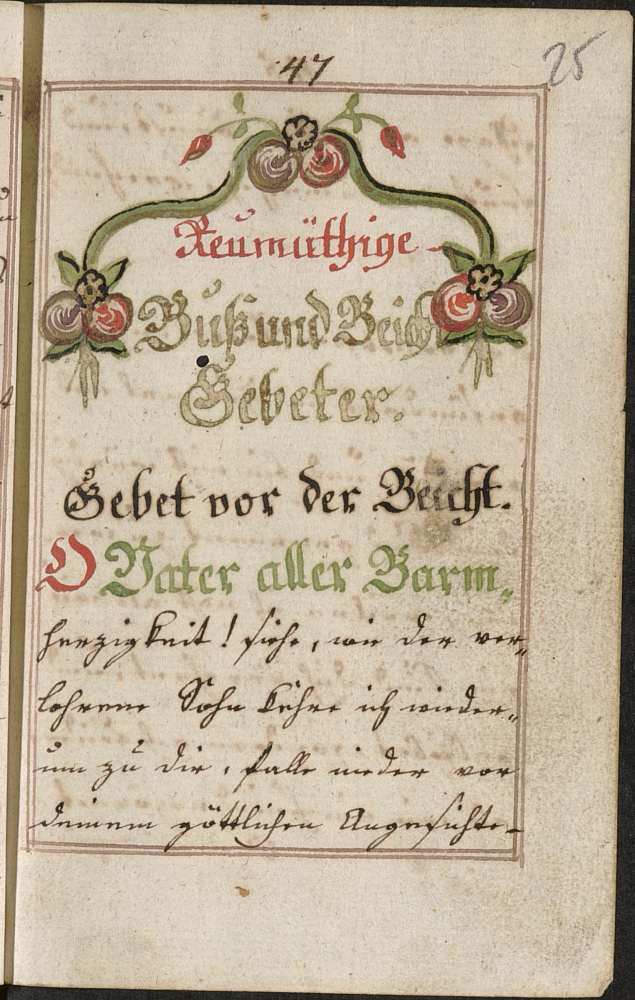 47
25
Reumüthige
Buß und Beicht
Gebeter.
Gebet vor der Beicht.
O Vater aller Barm„
herzigkeit! siehe, wie der ver„
lohrene Sohn kehre ich wieder„
um zu dir, falle nieder vor
deinem göttlichen Angesichte